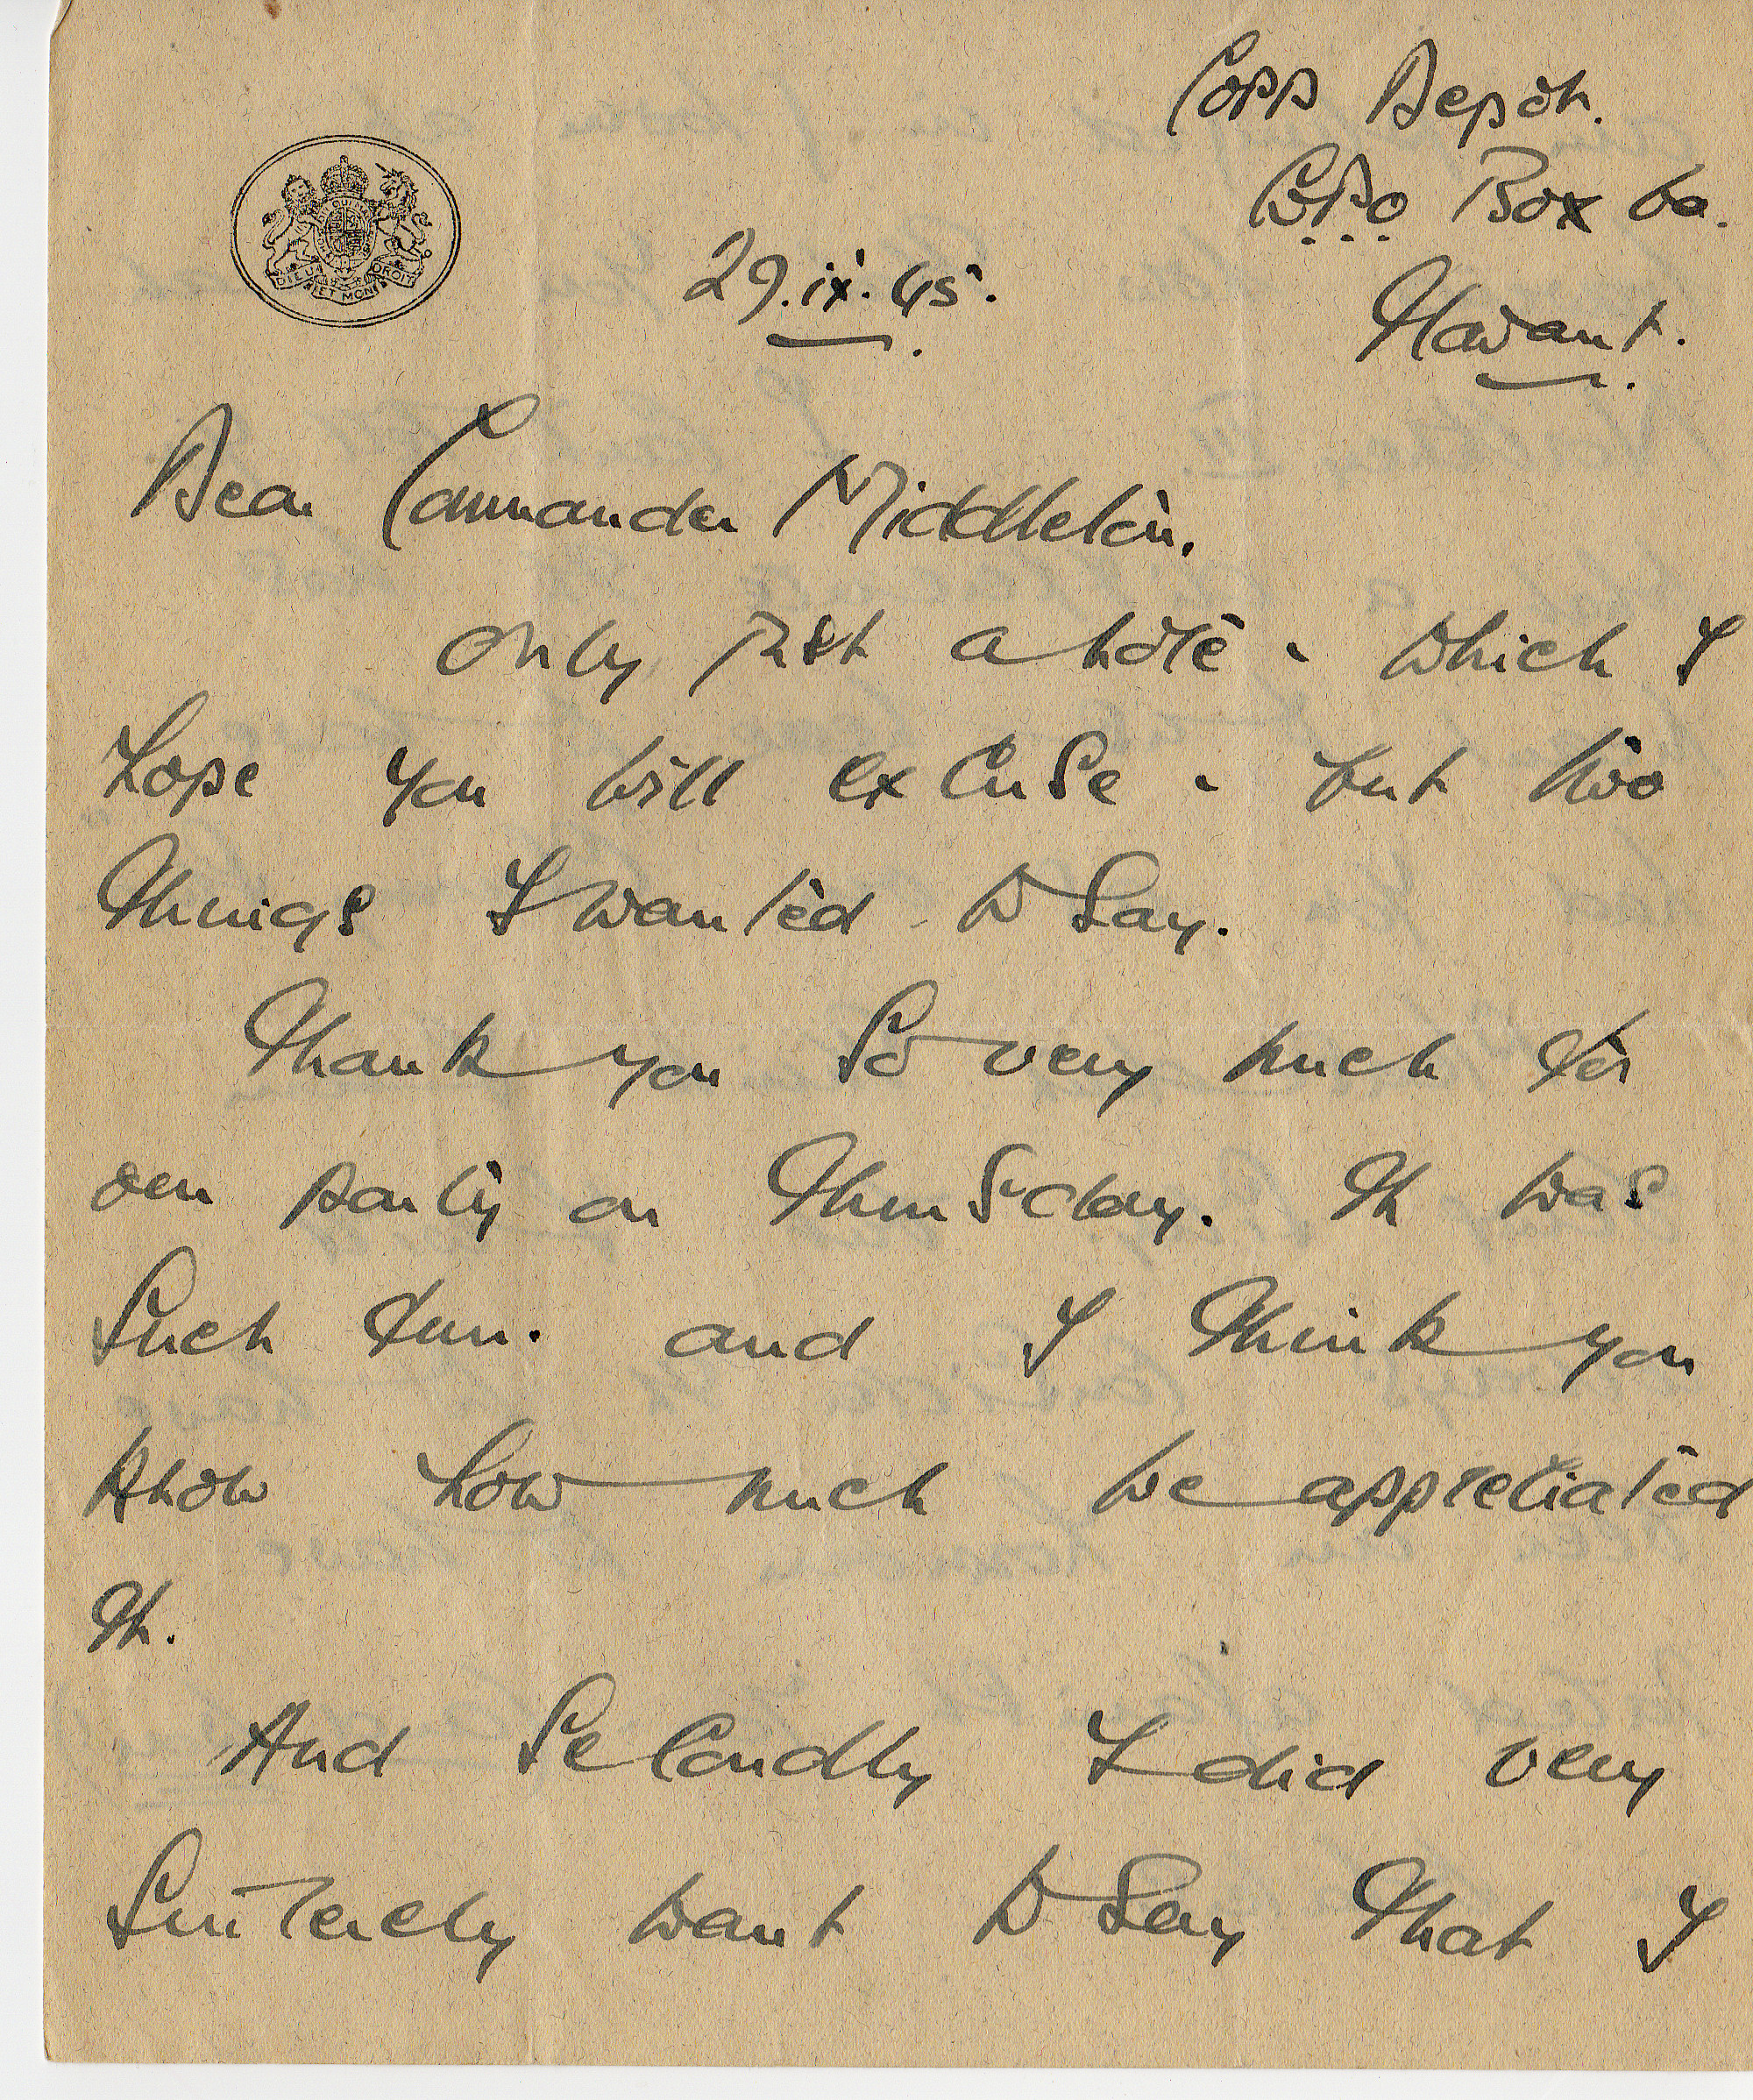 COPP Depot.
GPO Box 60.
29.ix.45.
Havant.
DIEU ET MON DROIT
Dear Commander Middleton.
Only just a note - which I
hope you will excuse - but two
things I wanted to say.
Thank you so very much for
our party on Thursday. It was
such fun. and I think you
know how much we appreciated
it.
And secondly I did very
sincerely want to say that I